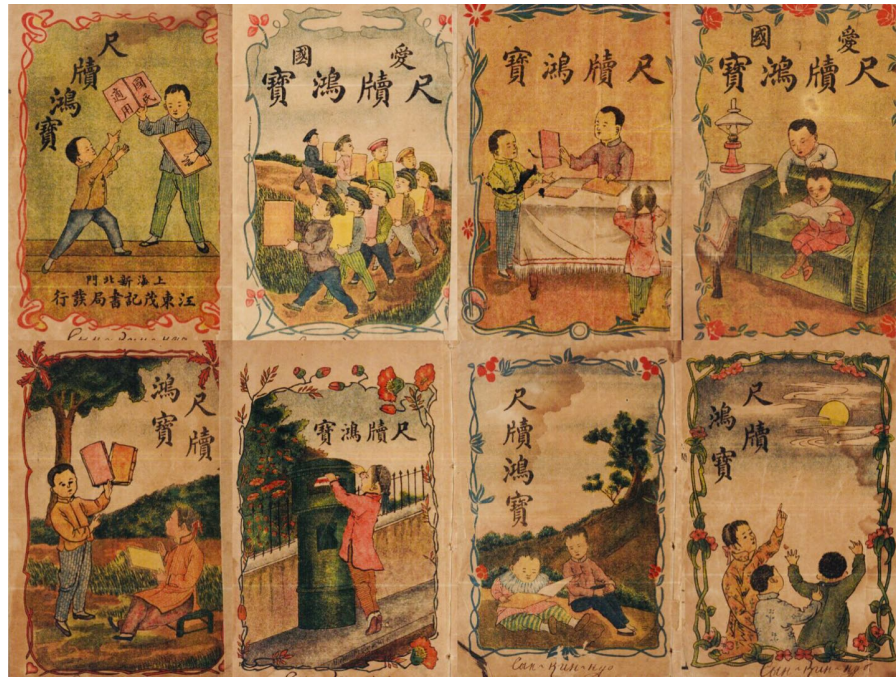 尺牘鴻寶
國民
適用
上海新北門
江東茂記書局發行
愛國
尺牘鴻寶
尺牘鴻寶
愛國
尺牘鴻寶
尺牘
鴻寶
尺牘鴻寶
尺牘鴻寶
尺牘
鴻寶